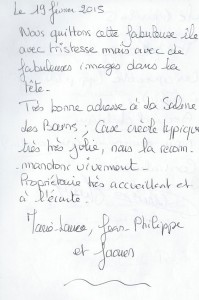 Le 19 février 2015
Nous quittons cette fabuleuse île
avec tristesse mais avec de
fabuleuses images dans la
tête.
Très bonne adresse à la Saline
des Bains ; Case créole typique
très très jolie, nous la recom-
mandons vivement.
Propriétaire très accueillent et
à l'écoute.
Marie-Laure, Jean-Philippe
et